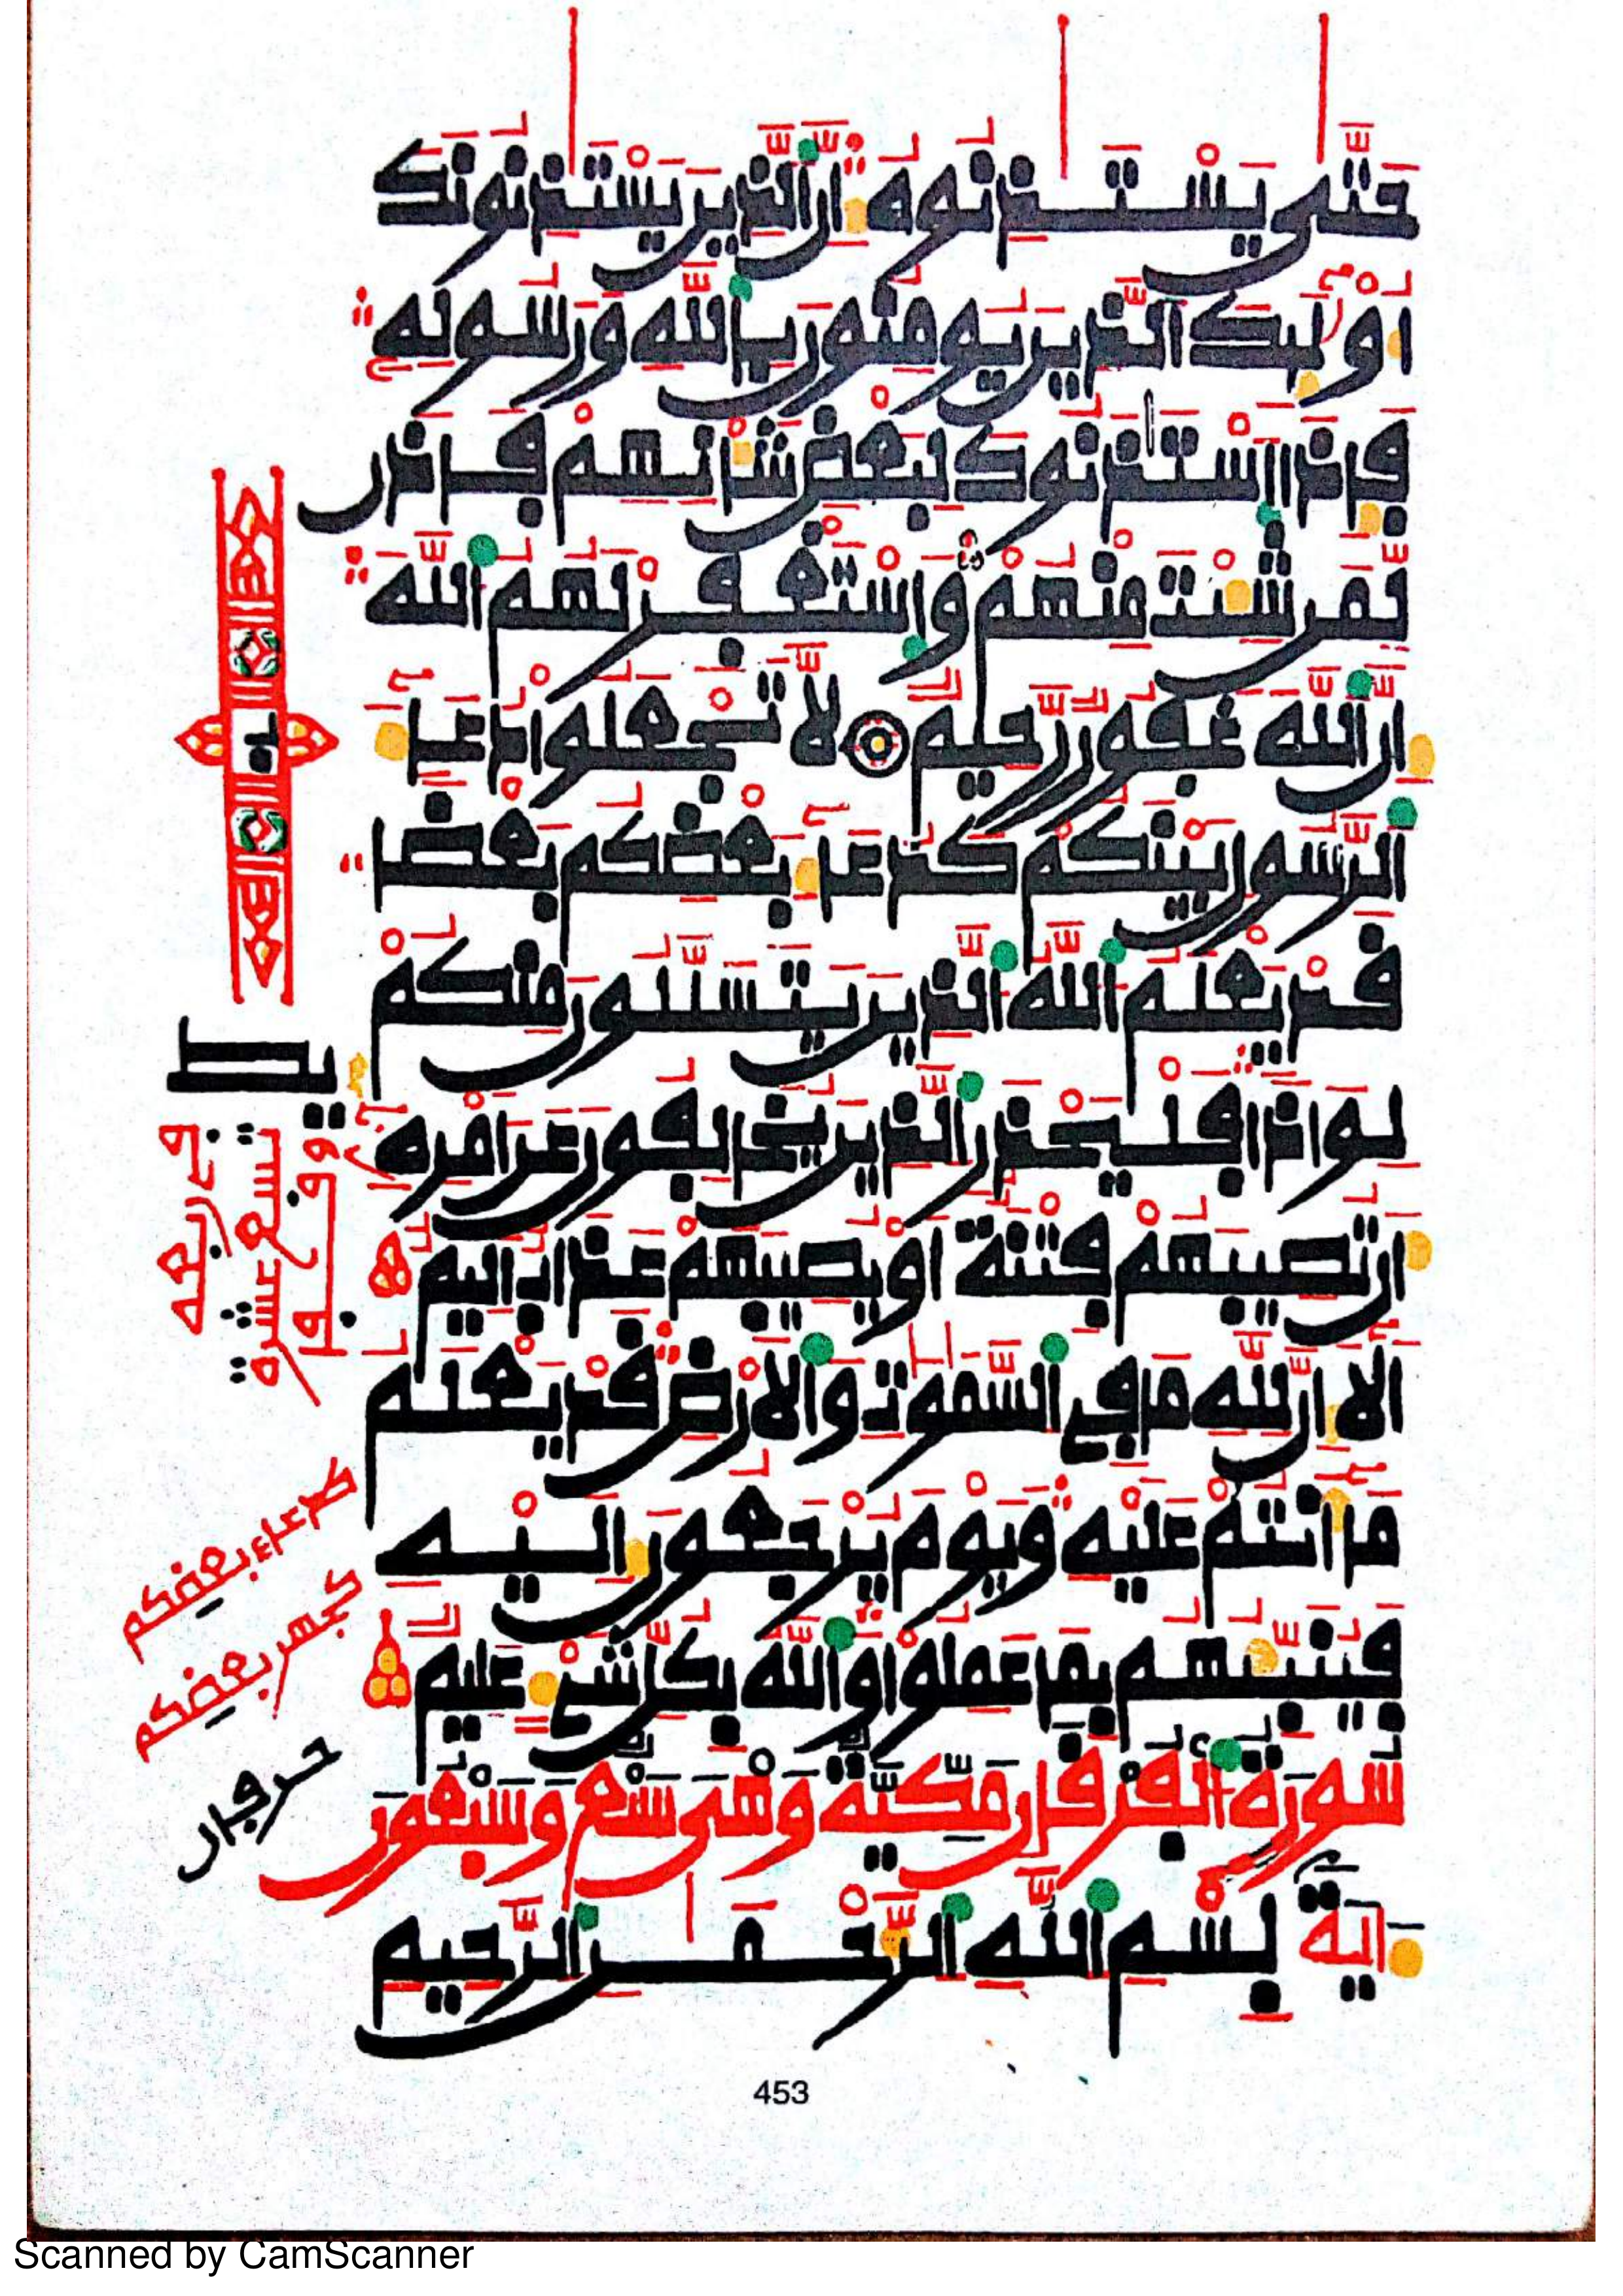 حَتَّىٰ يَسْتَـٔذِنُوهُ إِنَّ ٱلذِينَ يَسْتَـٔذِنُونَكَ
أُوْلَٰٓئِكَ ٱلذِينَ يُومِنُونَ بِٱللَّهِ وَرَسُولِهِۦ
فَإِذَا ٱسْتَـٔذَنُوكَ لِبَعْضِ شَأْنِهِمْ فَاذَن
لِّمَن شِئْتَ مِنْهُمْ وَٱسْتَغْفِرْ لَهُمُ ٱللَّهَ
إِنَّ ٱللَّهَ غَفُورٌ رَّحِيمٌ لَّا تَجْعَلُواْ دُعَآءَ
ٱلرَّسُولِ بَيْنَكُمْ كَدُعَآءِ بَعْضِكُم بَعْضًا
قَدْ يَعْلَمُ ٱللَّهُ ٱلذِينَ يَتَسَلَّلُونَ مِنكُمْ
لِوَاذًا فَلْيَحْذَرِ ٱلذِينَ يُخَالِفُونَ عَنْ أَمْرِهِۦٓ
أَن تُصِيبَهُمْ فِتْنَةٌ أَوْ يُصِيبَهُمْ عَذَابٌ أَلِيمٌ
أَلَآ إِنَّ لِلَّهِ مَا فِي ٱلسَّمَٰوَٰتِ وَٱلْأَرْضِ قَدْ يَعْلَمُ
مَآ أَنتُمْ عَلَيْهِ وَيَوْمَ يُرْجَعُونَ إِلَيْهِ
فَيُنَبِّئُهُم بِمَا عَمِلُواْ وَٱللَّهُ بِكُلِّ شَيْءٍ عَلِيمٌ
سُورَةُ ٱلْفُرْقَانِ مَكِّيَّةٌ وَهْيَ سَبْعٌ وَسَبْعُونَ
ءَايَةً بِسْمِ ٱللَّهِ ٱلرَّحْمَٰنِ ٱلرَّحِيمِ
تسع عشرة
بعضكم
بعضكم
453
Scanned by CamScanner